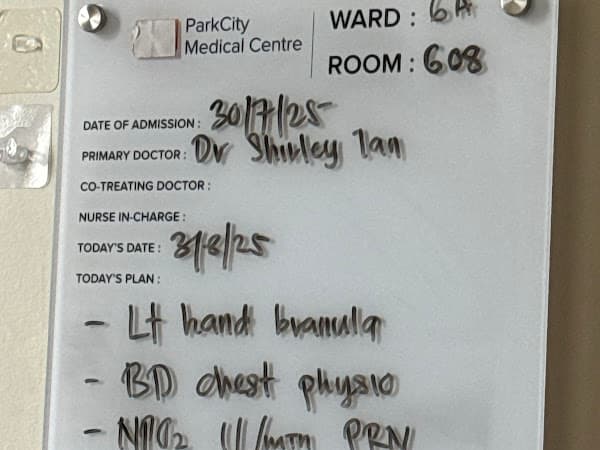 ParkCity
Medical Centre
WARD : 6A
ROOM : 608
DATE OF ADMISSION : 30/7/25
PRIMARY DOCTOR : Dr Shirley Tan
CO-TREATING DOCTOR :
NURSE IN-CHARGE :
TODAY'S DATE : 3/8/25
TODAY'S PLAN :
- Lt hand branula
- BD chest physio
- NPO2 1l/min PRN